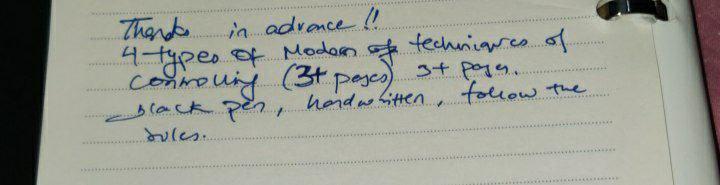 Thanks in advance !!
4 types of Modern of techniques of
Controlling (3+ pages) 3+ pages.
black pen, handwritten, follow the
rules.